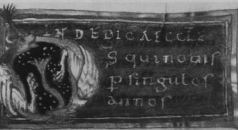 N DEDIC AECCLE
S quinodis
p singulos
annos